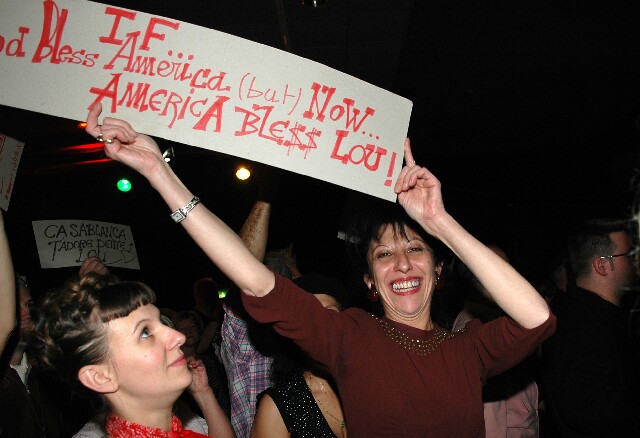 IF...
od bless America (but) NOW...
AMERICA BLE$$ LOU!
CASABLANCA
T'ADORE PETITE
LOU